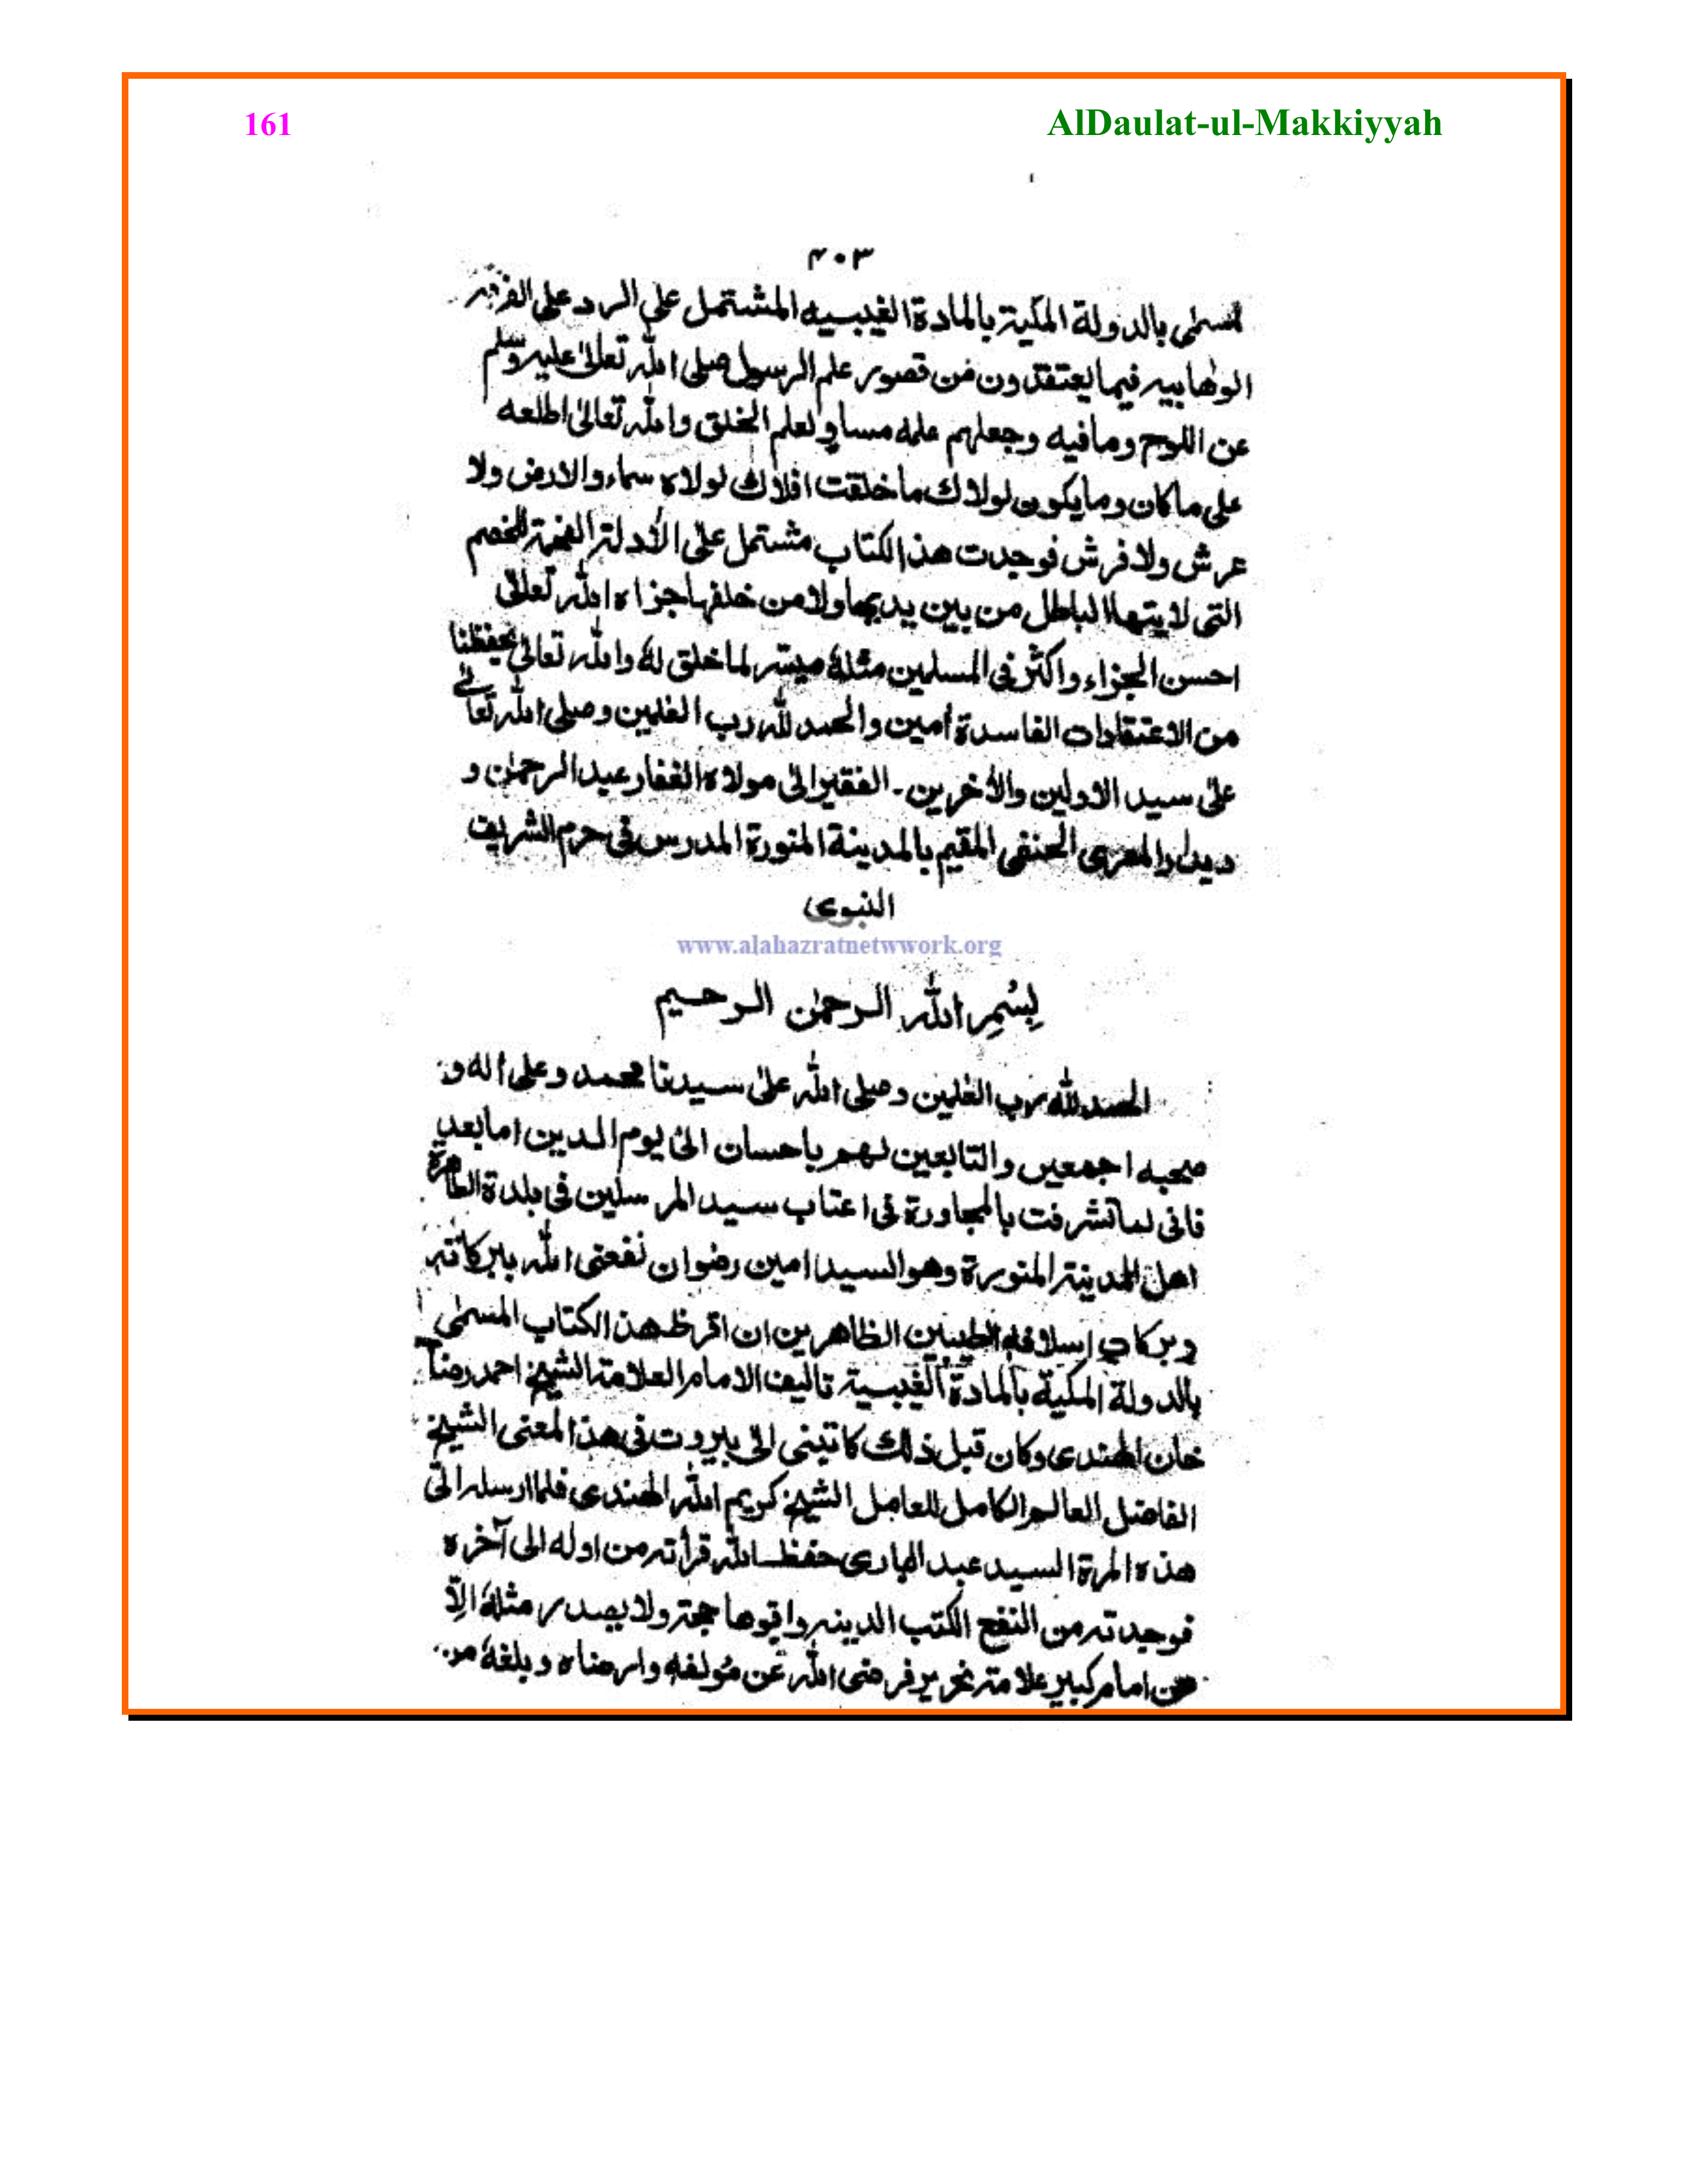 161 AlDaulat-ul-Makkiyyah
۴۰۳
المسمٰى بالدولة المكية بالمادة الغيبيه المشتمل على الرد على
الوهابيه فيما يعتقدون من قصور علم الرسول صلى الله تعالىٰ عليه وسلم
عن اللوح ومافيه وجعلهم علمه مساو لعلم الخلق والله تعالىٰ اطلعه
على ماكان ومايكون لولاك ماخلقت افلاك لولاه سماء والارض ولا
عرش ولا فرش فوجدت هذا الكتاب مشتمل على الأدلة للخصم
التى لايتها الباطل من بين يديها ولا من خلفها جزاه الله تعالىٰ
احسن الجزاء واكثر فى المسلمين مثلهٗ ميسر لما خلق لهٗ والله تعالىٰ يحفظنا
من الاعتقادات الفاسدة أمين والحمد لله رب العٰلمين وصلى الله تعالىٰ
علىٰ سيد الاولين والأخرين۔ الفقير الىٰ مولاه الغفار عبد الرحمٰن و
المقيم بالمدينة المنورة المدرس فى حرم الشريف الحنفى
النبوى
www.alahazratnetwwork.org
بِسْمِ الله الرحمٰن الرحيم
الحمد لله رب العٰلمين وصلى الله علىٰ سيدنا محمد وعلى اٰله و
صحبه اجمعين والتابعين لهم باحسان الىٰ يوم الدين اما بعد
فانى لما تشرفت بالمجاورة فى اعتاب سيد المرسلين فى بلدة الطاهرة
اهل المدينة المنورة وهو السيد امين رضوان نفعنى الله ببركاته
وبركات اسلافه الطيبين الظاهرين ان اقرظ هذا الكتاب المسمٰى
بالدولة المكية بالمادة الغيبية تاليف الامام العلامة الشيخ احمد رضا
خان الهندى وكان قبل ذلك كاتبنى الىٰ بيروت فى هذا المعنى الشيخ
الفاضل العالم الكامل العامل الشيخ كريم الله الهندى فلما ارسله الىّ
هذه المرة السيد عبد البارى حفظه الله قرأته من اوله الى آخره
فوجدته من النفع الكتب الدينه واقوها حجة ولا يصدر مثلهٗ الّا
عن امام كبير علامة نحرير فرضى الله عن مُولفه وارضاه وبلغهٗ من